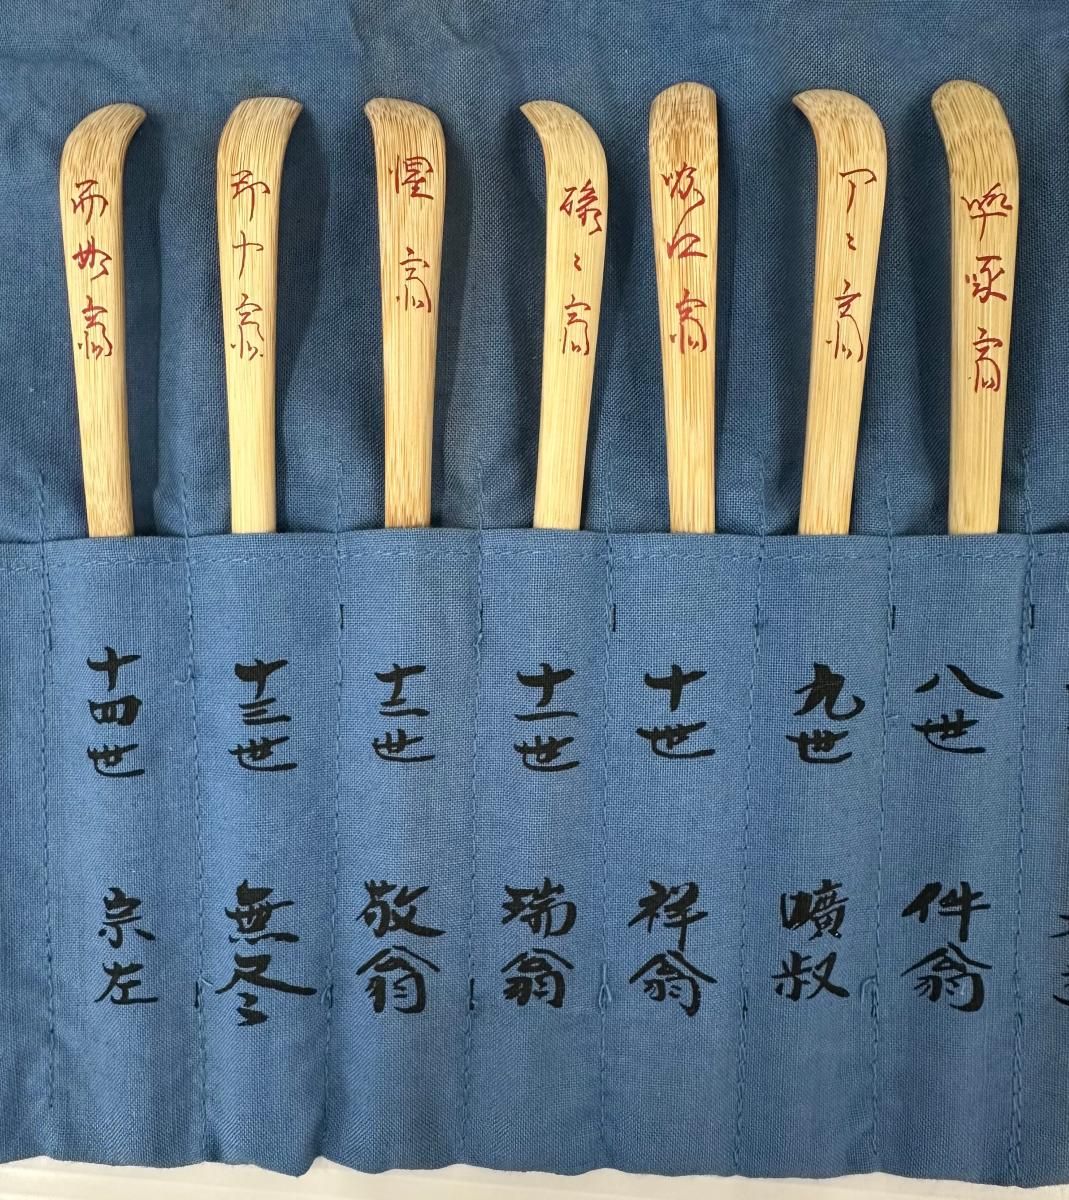 啐啄斎
八世 件翁
了々斎
九世 曠叔
吸江斎
十世 祥翁
碌々斎
十一世 瑞翁
惺斎
十二世 敬翁
即中斎
十三世 無尽
而妙斎
十四世 宗左